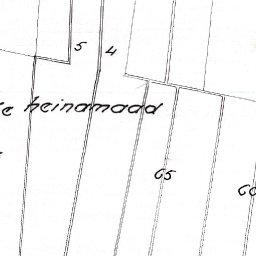 5 4
heinamaad
65